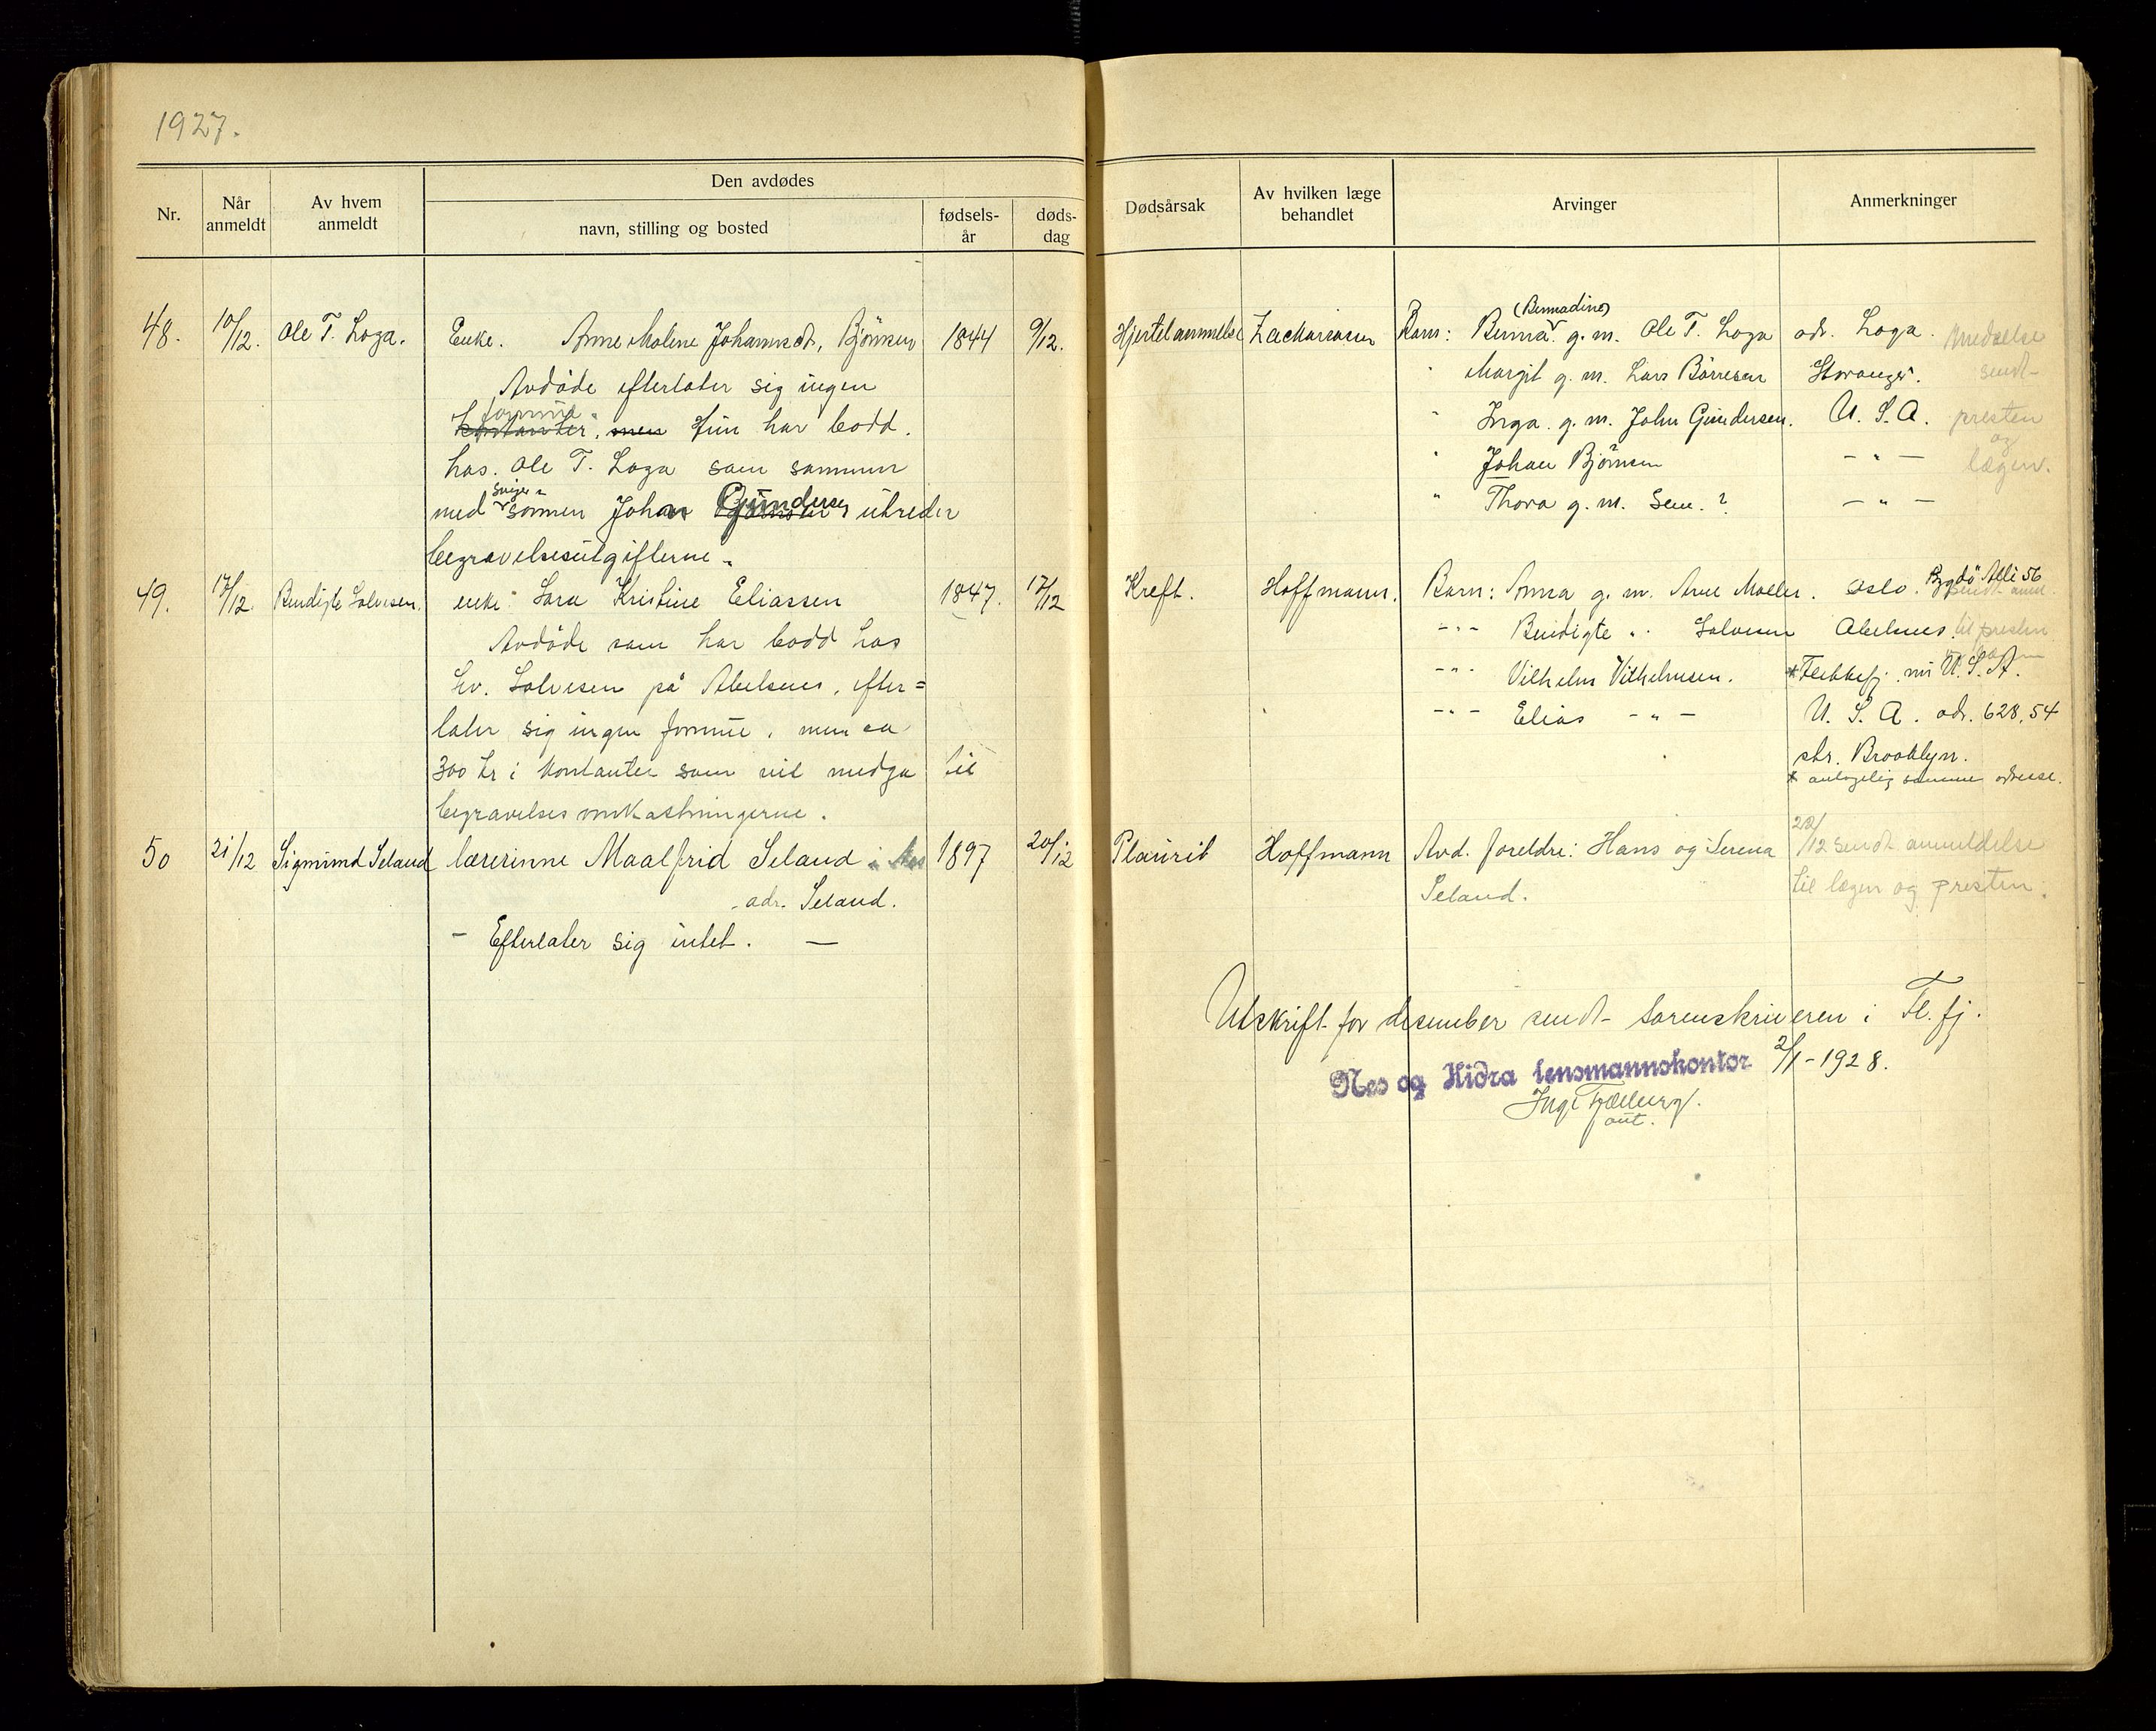 1927.
Nr.
Når anmeldt
Av hvem anmeldt
Den avdødes
navn, stilling og bosted
fødsels-år
døds-dag
Dødsårsak
Av hvilken læge behandlet
Arvinger
Anmerkninger
48. 10/12. Ole T. Loga. Enke. Anne Malene Johannsdt. Bjørnsen 1844 9/12.
Avdøde efterlater sig ingen
formue
kontanter, men Hun har bodd
hos. Ole T. Loga som sammen
sviger-
med sønnen Johan Gundersen utreder
begravelsesutgifterne.
Hjertelammelse Zachariassen
(Bernadine)
Barn: Berna g.m. Ole T. Loga adr. Loga. Meddelse
" Margit g.m. Lars Børresen Stavanger. sendt
" Inga. g.m. John Gundersen. U.S.A. presten
og
" Johan Bjørnsen - " - lægen.
" Thora g.m. Sem. ? - " -
49. 17/12. Bendigte Salvesen. enke Sara Kristine Eliassen 1847. 17/12
Avdøde som har bodd hos
hv. Salvesen på Abelsnes, efter=
later sig ingen formue, men ca
300 kr i kontanter som vil medgå til
begravelsesomkostningerne.
Kreft. Hoffmann. Barn: Anna g.m. Arne Moller. Oslo. Bygdö Allé 56
sendt anm.
-"- Bendigte " Salvesen Abelsnes. til presten
-"- Vilhelm Vilhelmsen. * Flekkefj. nu U.S.A.
-"- Elias - " - U.S.A. adr. 628, 54
str. Brooklyn.
* antagelig samme adresse.
50 21/12 Sigmund Seland lærerinne Maalfrid Seland i Nes 1897 20/12
adr. Seland.
- Efterlater sig intet. -
Pleurit Hoffmann Avd. foreldre: Hans og Serena
Seland.
22/12 sendt anmeldelse
til lægen og presten.
Utskrift for desember sendt Sorenskriveren i Fl.fj.
Nes og Hidra lensmannskontor 2/1-1928.